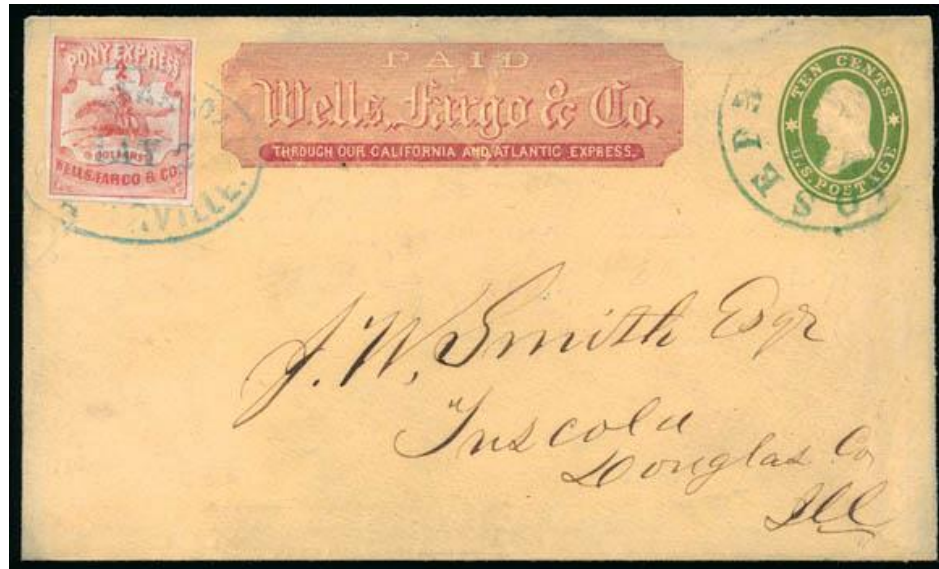 PONY EXPRESS
2
DOLLARS
WELLS, FARGO & CO.
PAID
Wells, Fargo & Co.
THROUGH OUR CALIFORNIA AND ATLANTIC EXPRESS.
TEN CENTS
U.S. POSTAGE
J. W. Smith Esqr
Tuscola
Douglas Co
Ill